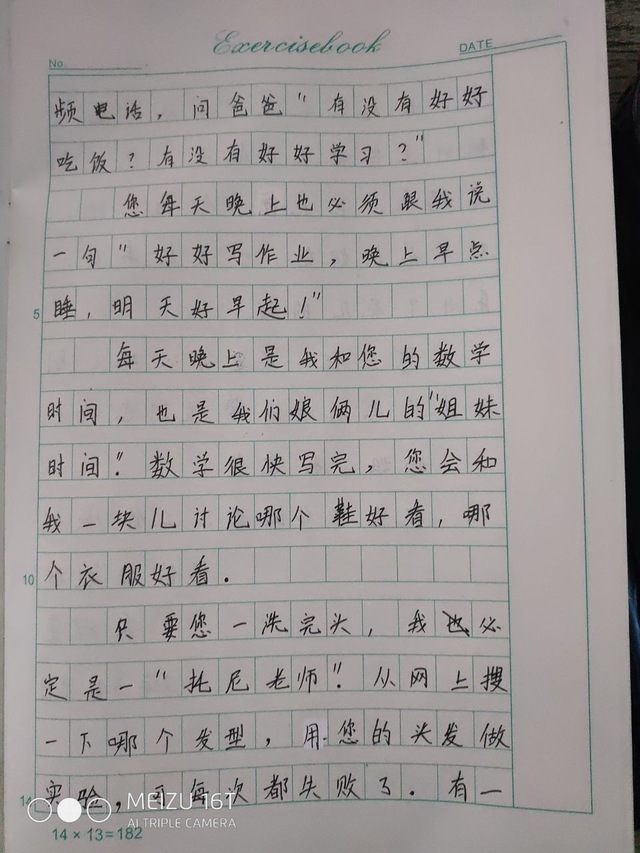 Exercisebook
No.
DATE
频电话，问爸爸"有没有好好
吃饭？有没有好好学习？"
您每天晚上也必须跟我说
一句"好好写作业，晚上早点
5
睡，明天好早起！"
每天晚上是我和您的数学
时间，也是我们娘俩儿的"姐妹
时间"。数学很快写完，您会和
我一块儿讨论哪个鞋好看，哪
10
个衣服好看.
只要您一洗完头，我必
定是一"托尼老师"。从网上搜
一下哪个发型，用您的头发做
14
实验，可每次都失败了.有一
MEIZU 16T
AI TRIPLE CAMERA
14×13=182